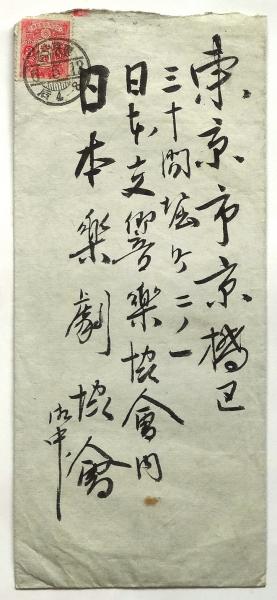 東京市京橋区
三十間堀町二ノ一
日本交響楽協會内
日本楽劇協會
御中